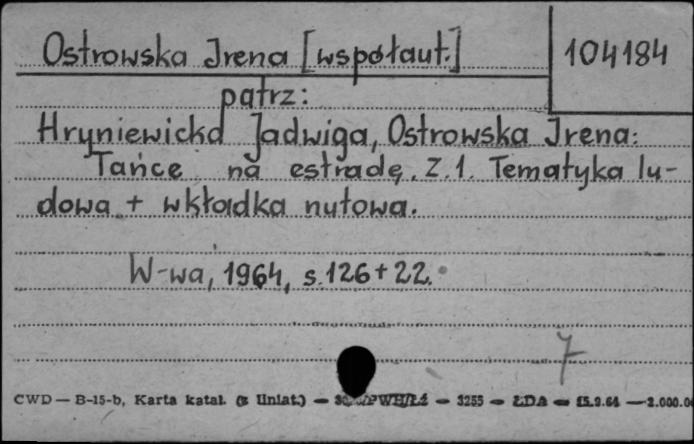 Ostrowska Irena [współaut.] 104184
patrz:
Hryniewicka Jadwiga, Ostrowska Irena:
Tańce na estradę. Z.1. Tematyka lu-
dowa + wkładka nutowa.
W-wa, 1964, s.126+22.
7
CWD — B-15-b, Karta katal. (z liniat.) — — 3255 — ŁDA — 15.9.64 — 2.000.0